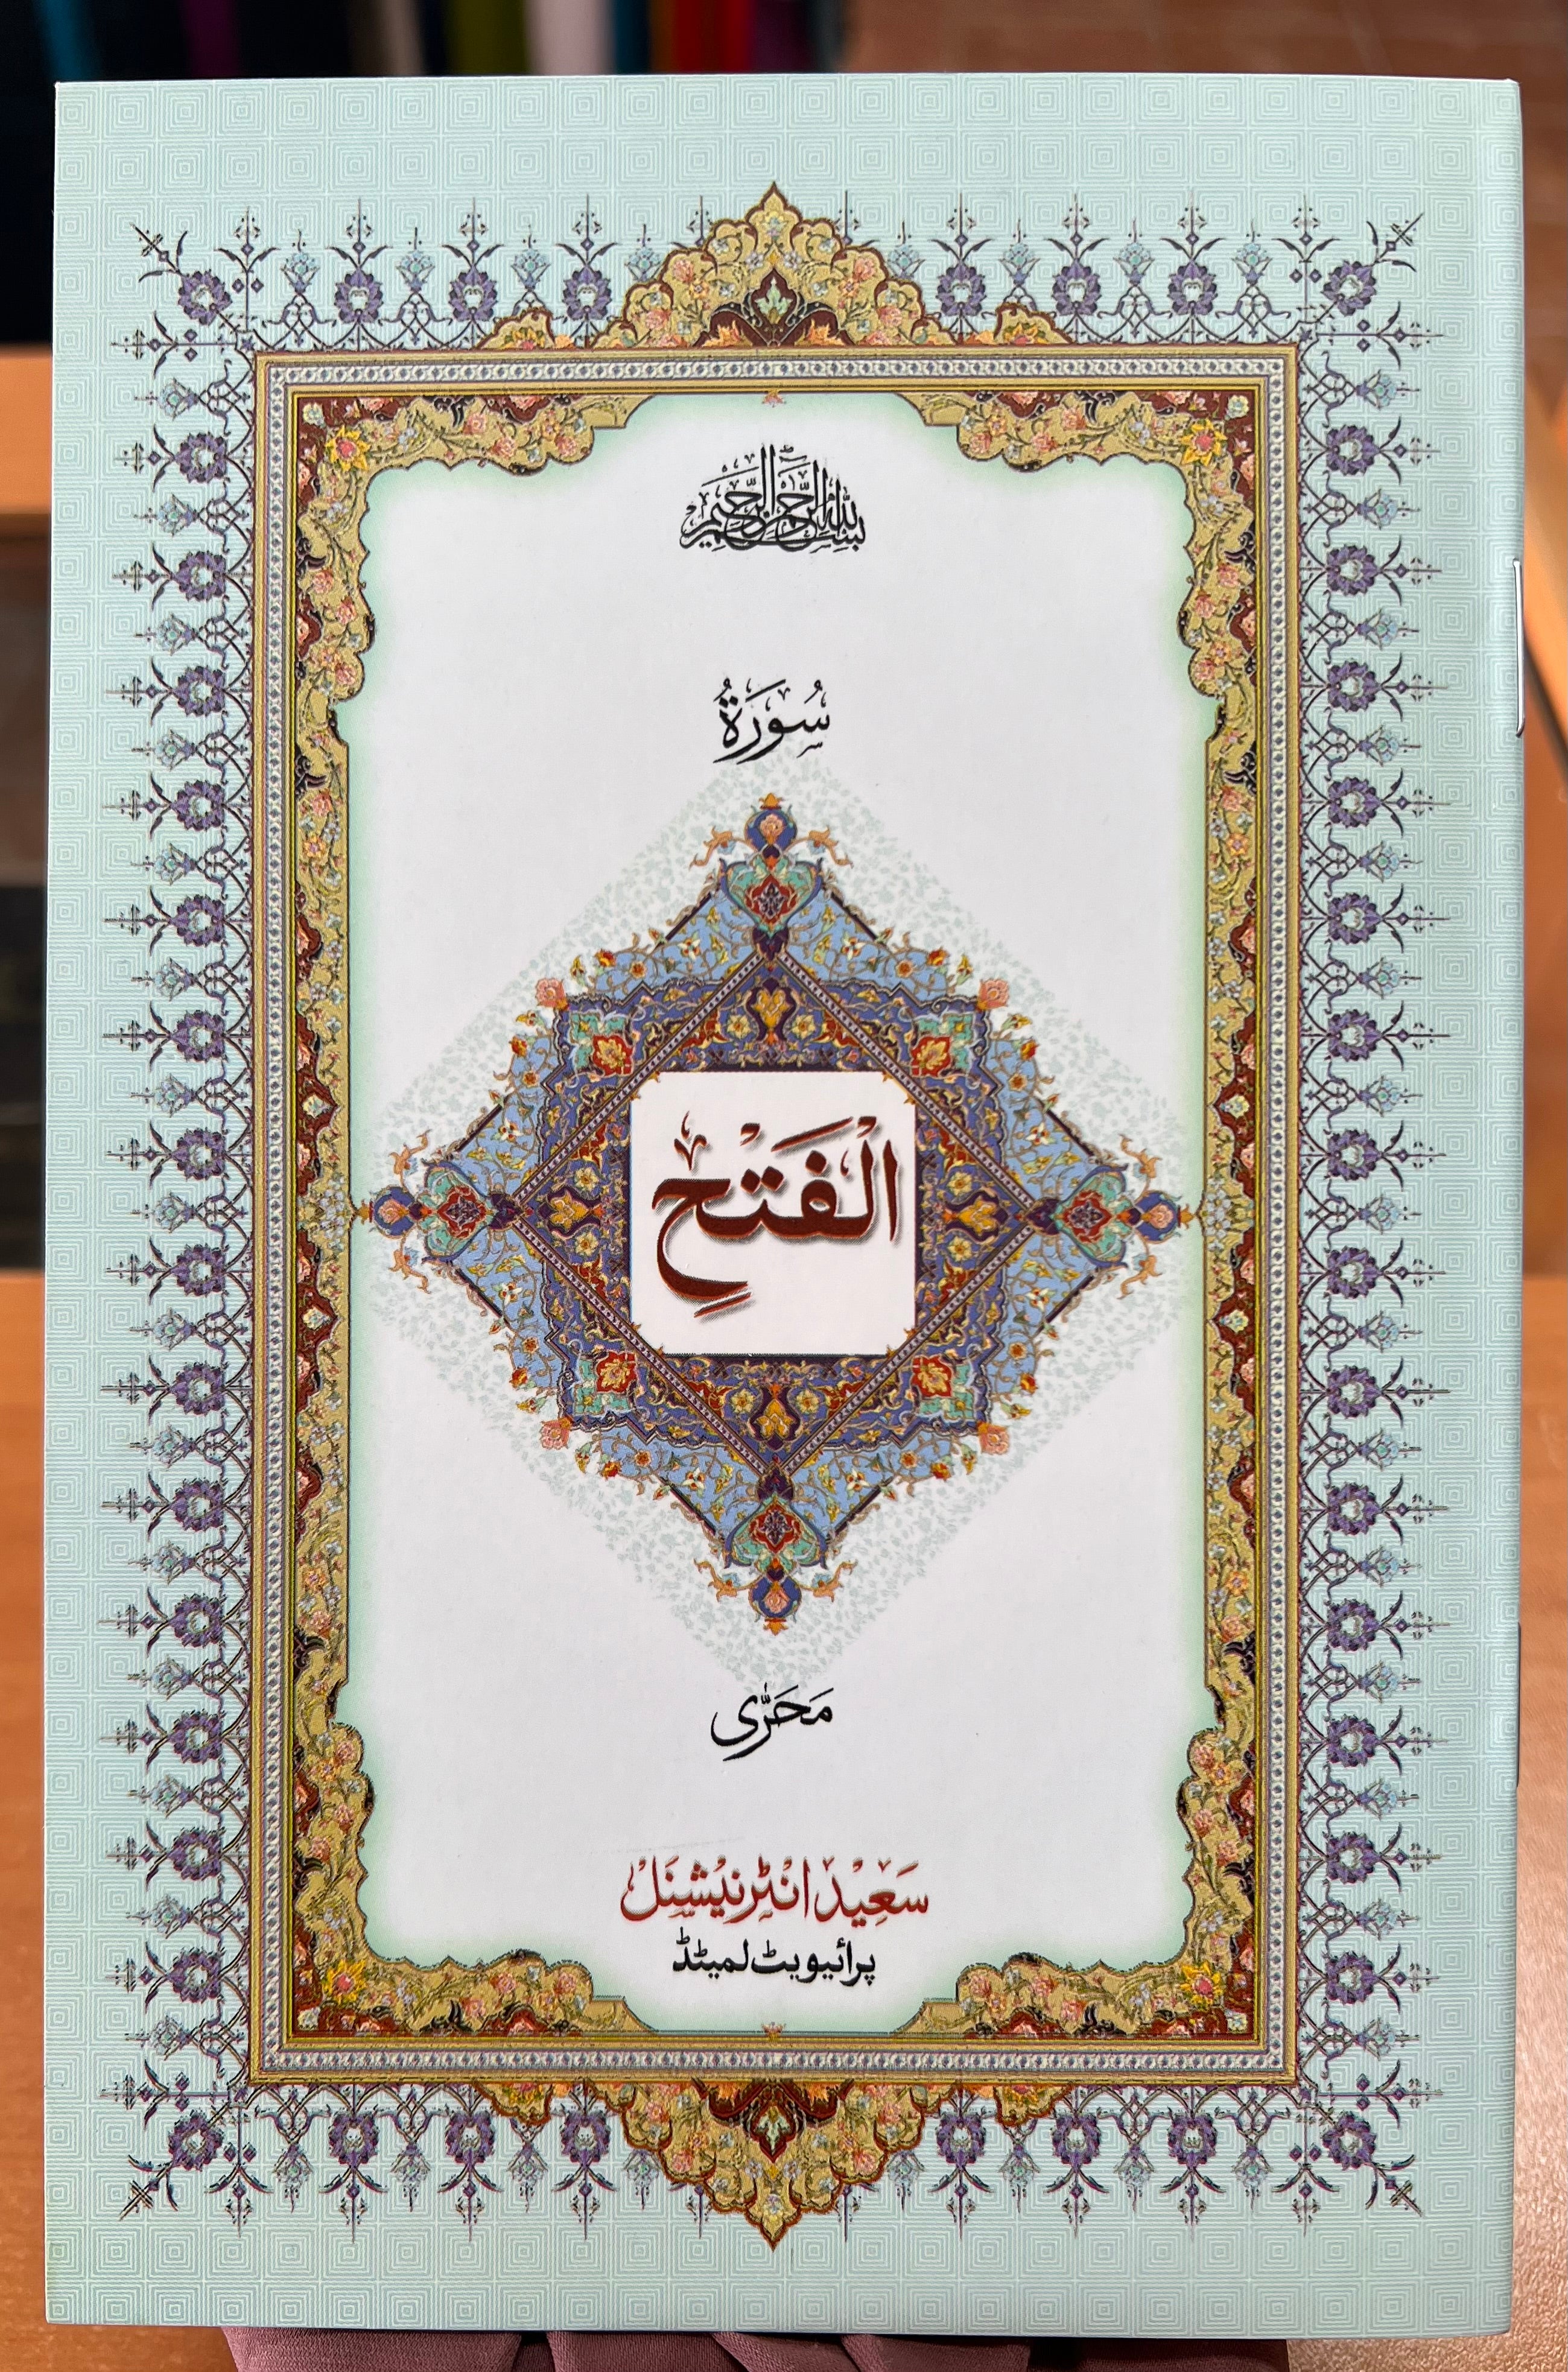 بِسْمِ اللّٰهِ الرَّحْمٰنِ الرَّحِيْمِ
سُورَةُ
الْفَتْحِ
مَحَرّٰی
سَعِیْد انْٹرنیْشنَل
پرائیویٹ لمیٹڈ